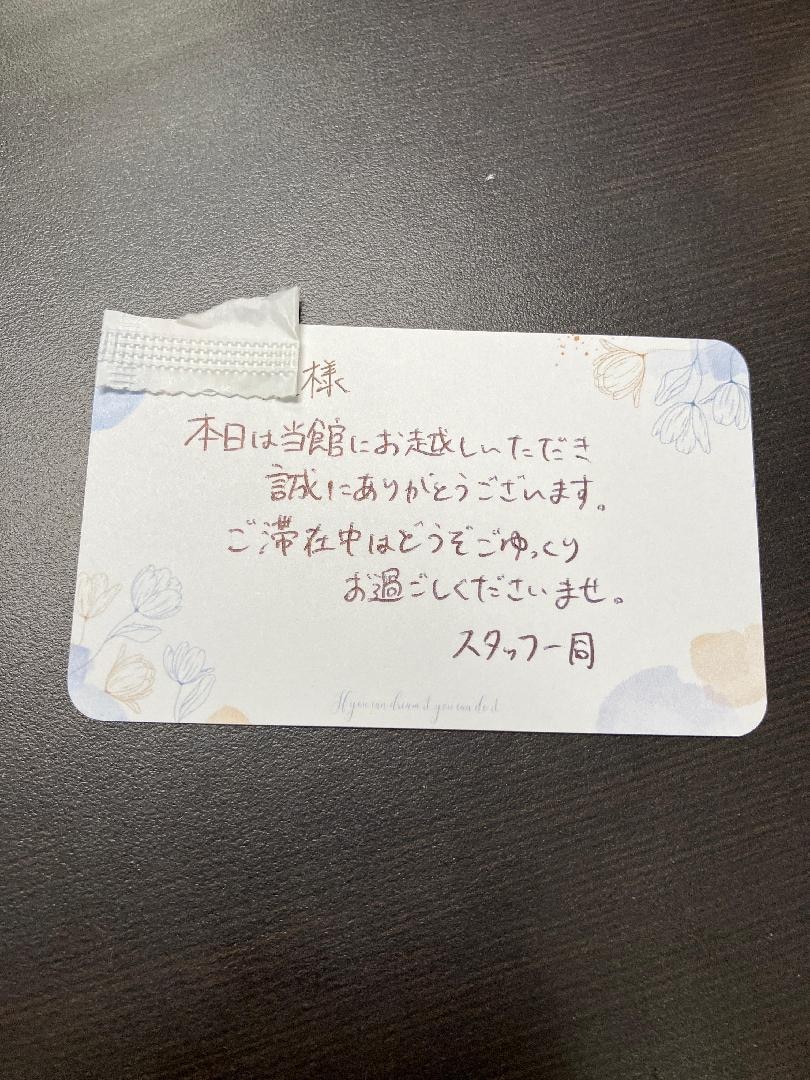 様
本日は当館にお越しいただき
誠にありがとうございます。
ご滞在中はどうぞごゆっくり
お過ごしくださいませ。
スタッフ一同
If you can dream it you can do it